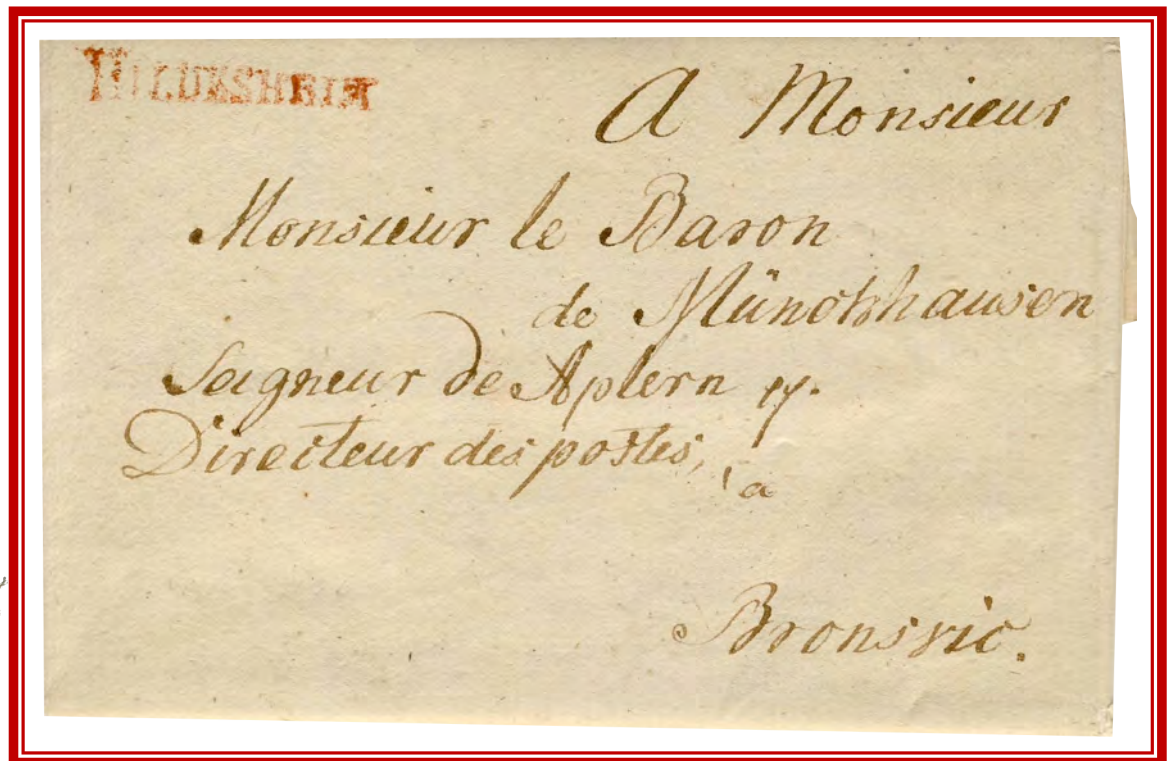 HILDESHEIM
A Monsieur
Monsieur le Baron
de Münchhausen
Seigneur de Aplern
Directeur des postes,
à
Bronsvic.